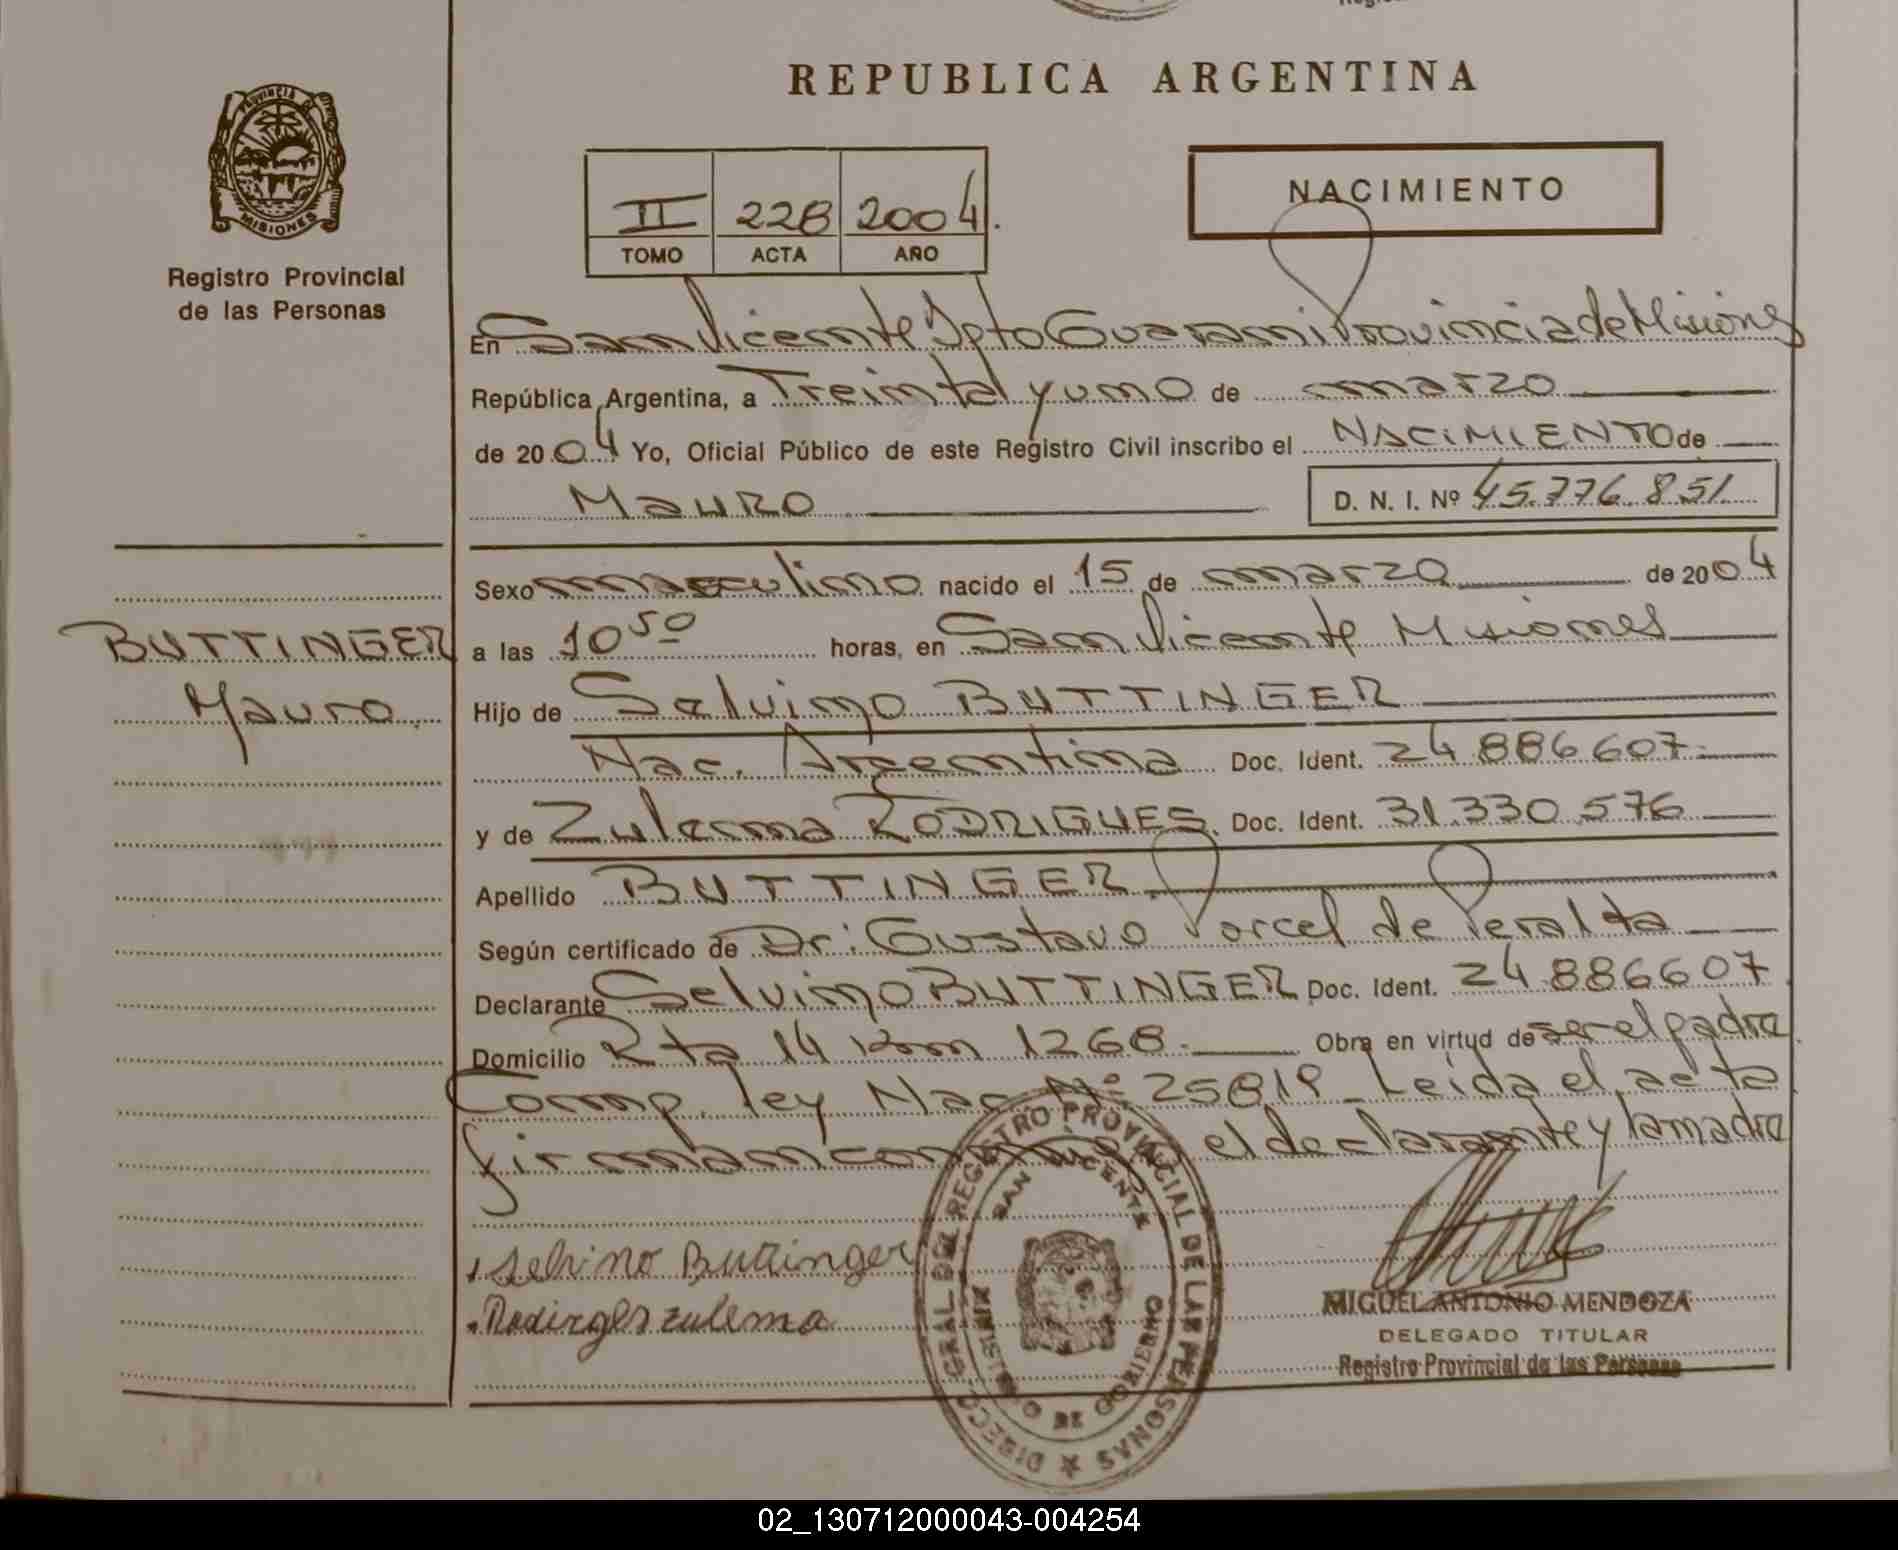 REPUBLICA ARGENTINA
PROVINCIA DE MISIONES
Registro Provincial
de las Personas
II 228 2004.
TOMO ACTA AÑO
NACIMIENTO
En San Vicente Dpto Guarani Provincia de Misiones
República Argentina, a Treinta y uno de marzo
de 2004 Yo, Oficial Público de este Registro Civil inscribo el NACIMIENTO de
MAURO D. N. I. Nº 45.776.851
Sexo masculino nacido el 15 de marzo de 2004
BUTTINGER
Mauro.
a las 10 50 horas, en San Vicente Misiones
Hijo de Selvino BUTTINGER
Nac. Argentina Doc. Ident. 24.886.607
y de Zulema RODRIGUES. Doc. Ident. 31.330.576
Apellido BUTTINGER
Según certificado de Dr: Gustavo Porcel de Peralta
Declarante Selvino BUTTINGER Doc. Ident. 24.886607
Domicilio Rta 14 Km 1268. Obra en virtud de ser el padre
Comp. ley Nac Nº 25819 Leida el acta
firman conmigo el declarante y la madre
Selvino Buttinger
Rodirges zulema
DIRECC. GRAL. DEL REGISTRO PROVINCIAL DE LAS PERSONAS
SAN VICENTE
MINISTERIO DE GOBIERNO
MIGUEL ANTONIO MENDOZA
DELEGADO TITULAR
Registro Provincial de las Personas
02_130712000043-004254